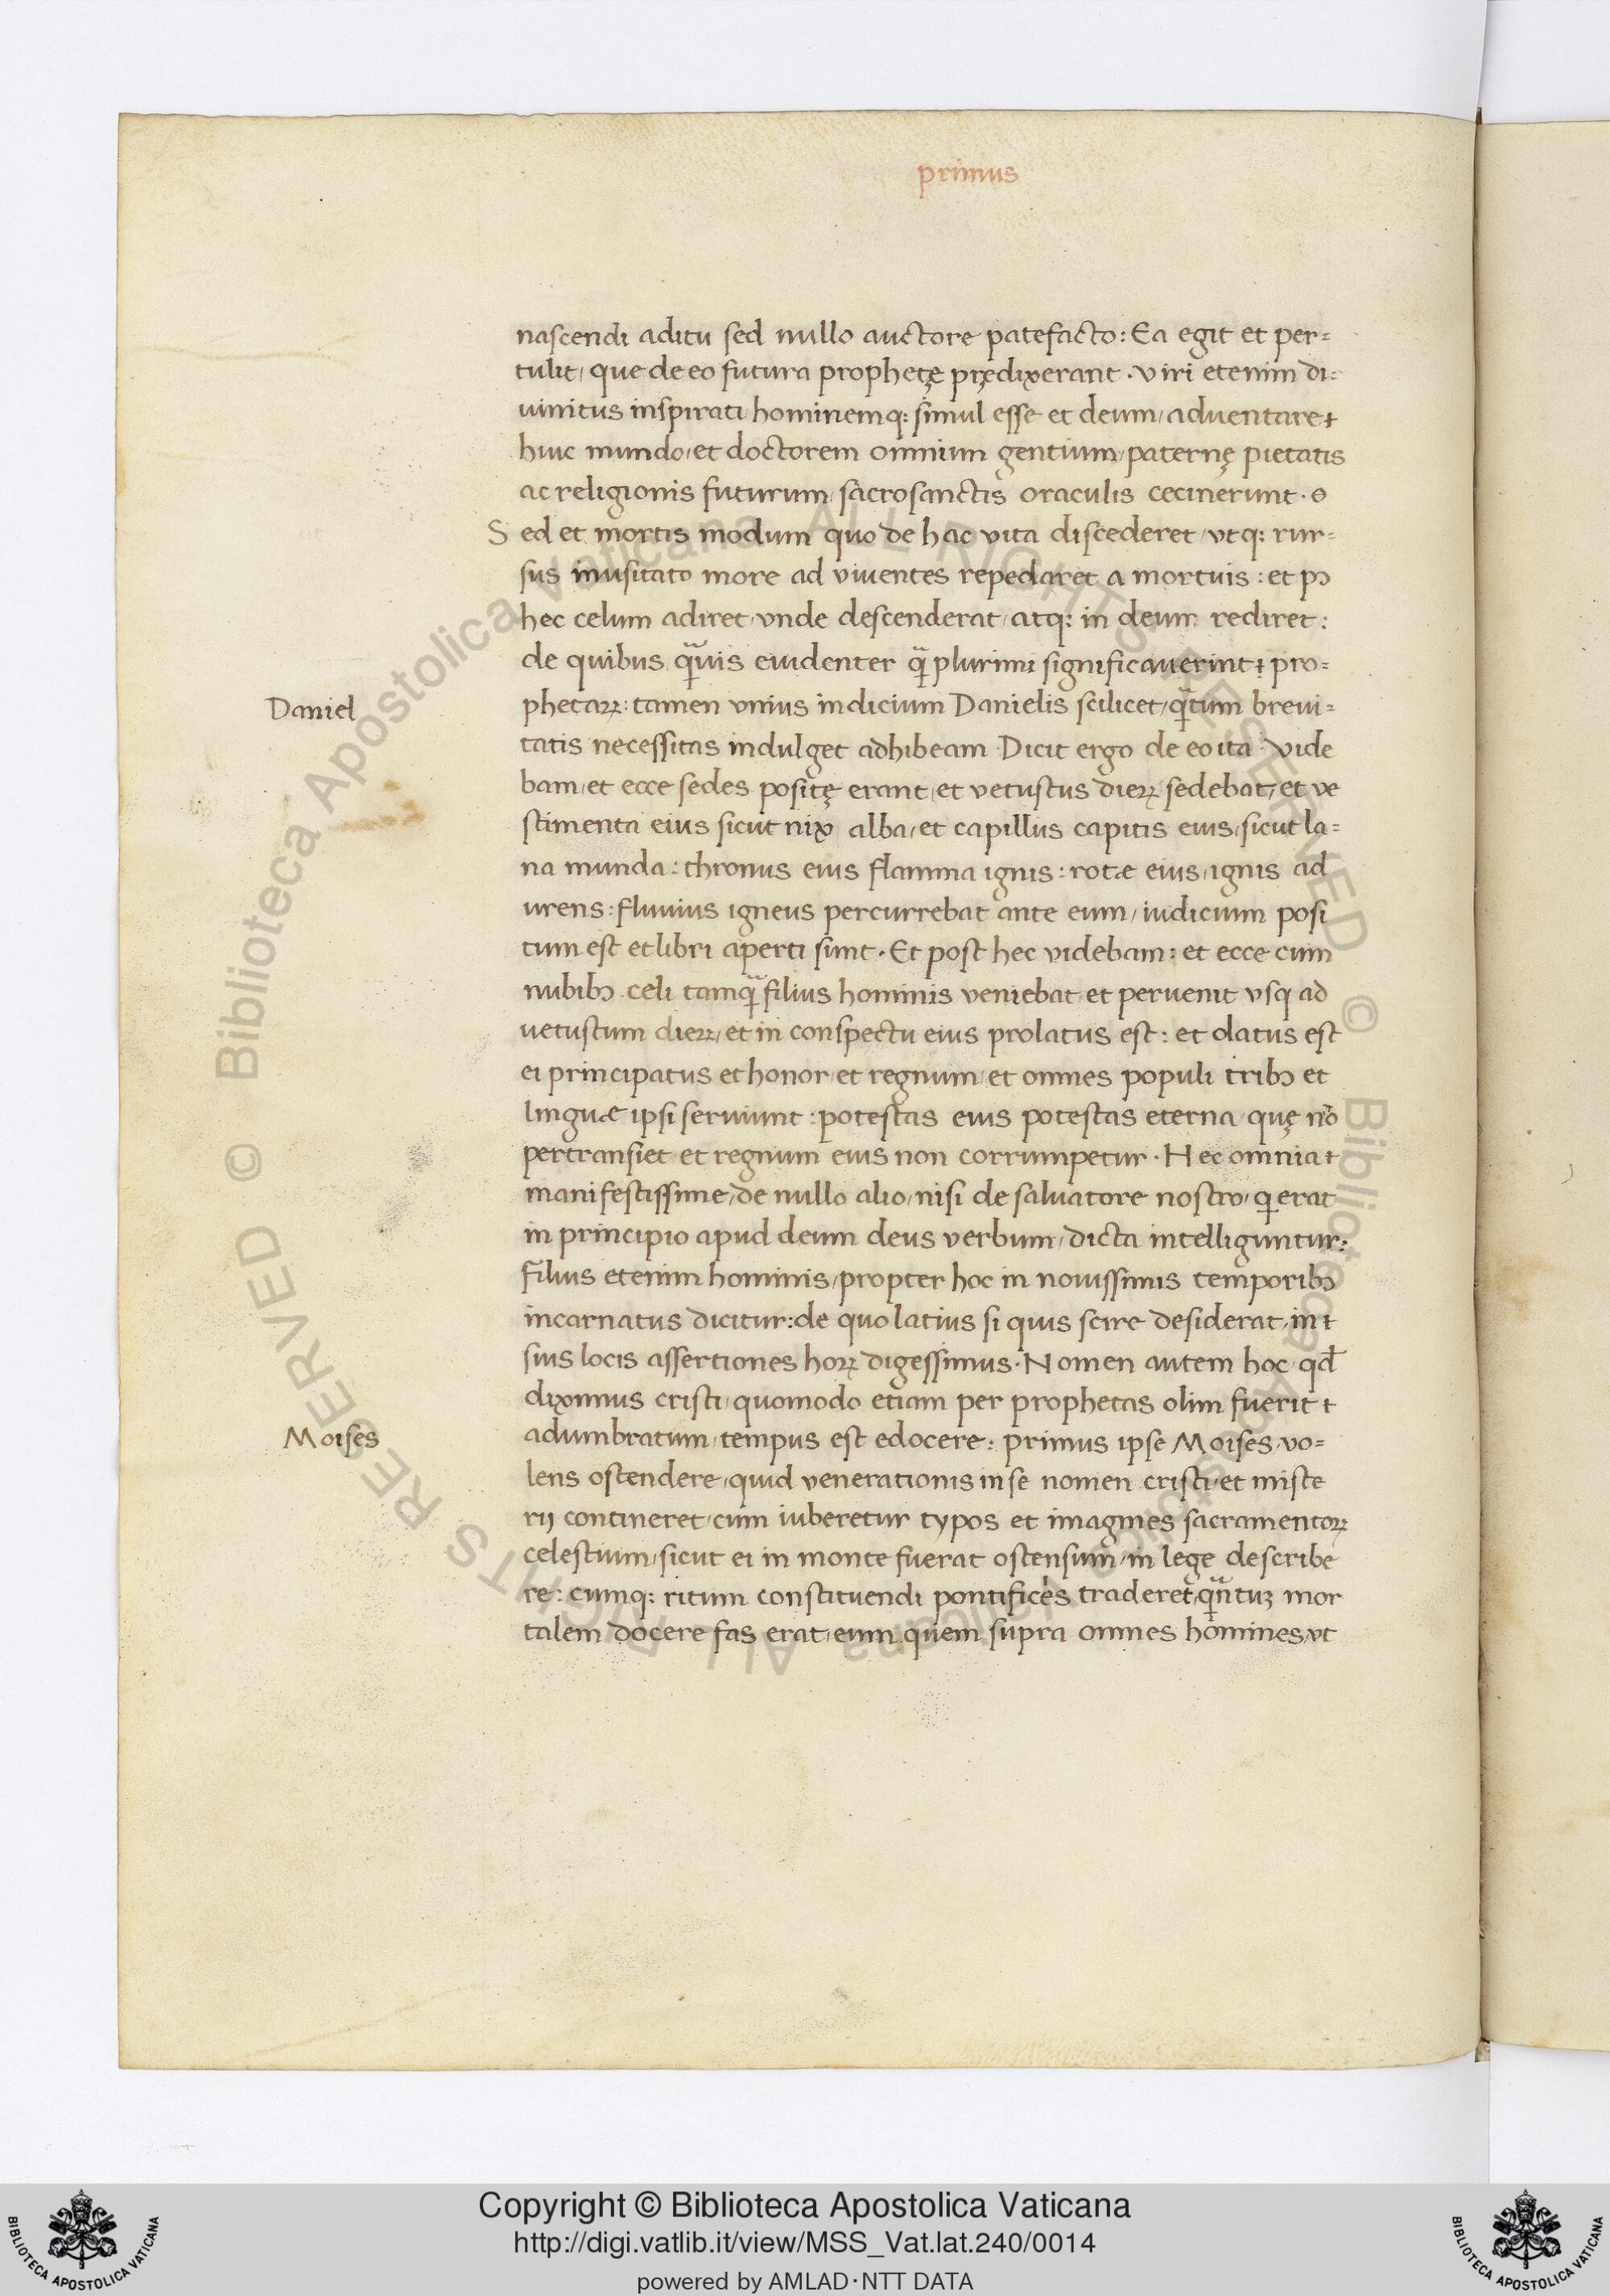 primus
nascendi aditu sed nullo auctore patefacto: Ea egit et per=
tulit, que de eo futura prophetę prędixerant. Viri etenim di=
uinitus inspirati, hominemq: simul esse et deum, aduentare
huic mundo, et doctorem omnium gentium, paternę pietatis
ac religionis futurum, sacrosanctis oraculis cecinerunt.
Sed et mortis modum quo de hac vita discederet, vtq: rur=
sus inusitato more ad viuentes repedaret a mortuis: et pꝰ
hec celum adiret, vnde descenderat, atq: in deum rediret:
de quibus qͣuis euidenter qͣ plurimi significauerint pro=
Daniel
phetaꝝ: tamen vnius indicium Danielis scilicet, qͣtum breui=
tatis necessitas indulget adhibeam. Dicit ergo de eo ita. Vide
bam, et ecce sedes positę erant, et vetustus dieꝝ sedebat, et ve
stimenta eius sicut nix alba, et capillus capitis eius, sicut la=
na munda: thronus eius flamma ignis: rotæ eius, ignis ad
urens: fluuius igneus percurrebat ante eum, iudicium posi
tum est et libri aperti sunt. Et post hec videbam: et ecce cum
nubibꝰ celi tamqͣ filius hominis veniebat et peruenit vsq ad
uetustum dieꝝ, et in conspectu eius prolatus est: et datus est
ei principatus et honor, et regnum, et omnes populi tribꝰ et
linguæ ipsi seruiunt: potestas eius potestas eterna, quę nō
pertransiet et regnum eius non corrumpetur. Hec omnia
manifestissime, de nullo alio, nisi de saluatore nostro, qͥ erat
in principio apud deum deus verbum, dicta intelliguntur:
Filius etenim hominis, propter hoc in nouissimis temporibꝰ
incarnatus dicitur: de quo latius si quis scire desiderat, in
suis locis assertiones hoꝝ digessimus. Nomen autem hoc, qđ
diximus cristi, quomodo etiam per prophetas olim fuerit
Moises
adumbratum, tempus est edocere: primus ipse Moises, vo=
lens ostendere, quid venerationis in se nomen cristi, et miste
rij contineret, cum iuberetur typos et imagines sacramentoꝝ
celestium, sicut ei in monte fuerat ostensum, in lege describe
re: cumq: ritum constituendi pontifices traderet, qͣntuꝫ mor
talem docere fas erat, eum quem supra omnes homines, vt
Copyright © Biblioteca Apostolica Vaticana
http://digi.vatlib.it/view/MSS_Vat.lat.240/0014
powered by AMLAD·NTT DATA
BIBLIOTECA APOSTOLICA VATICANA
BIBLIOTECA APOSTOLICA VATICANA
© Biblioteca Apostolica Vaticana ALL RIGHTS RESERVED © Biblioteca Apostolica Vaticana ALL RIGHTS RESERVED